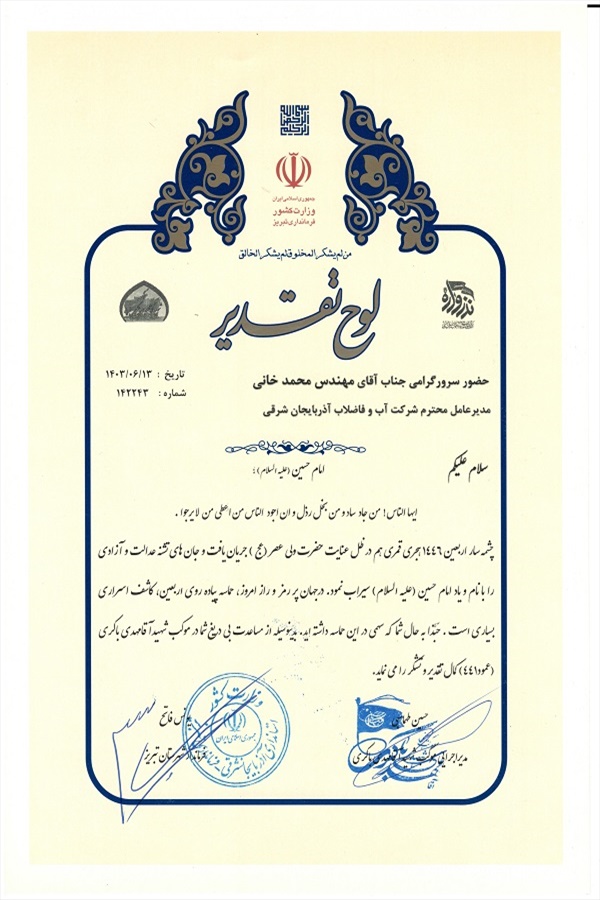 بسم الله الرحمن الرحیم
جمهوری اسلامی ایران
وزارت کشور
فرمانداری تبریز
من لم یشکر المخلوق لم یشکر الخالق
لوح تقدیر
حضور سرور گرامی جناب آقای مهندس محمد خانی
تاریخ : ۱۴۰۳/۰۶/۱۳
مدیرعامل محترم شرکت آب و فاضلاب آذربایجان شرقی
شماره : ۱۴۲۲۴۳
سلام علیکم
امام حسین (علیه السلام) ؛
ایها الناس! من جاد ساد و من بخل رذل و ان اجود الناس من اعطی من لا یرجوا .
چشمه سار اربعین ۱۴۴۶ هجری قمری هم در ظل عنایت حضرت ولی عصر (عج) جریان یافت و جان های تشنه عدالت و آزادی
را با نام و یاد امام حسین (علیه السلام) سیراب نمود. در جهان پر رمز و راز امروز، حماسه پیاده روی اربعین، کاشف اسراری
بسیاری است . حبّذا به حال شما که سهمی در این حماسه داشته اید. بدینوسیله از مساعدت بی دریغ شما در موکب شهید آقا مهدی باکری
(عمود ۴۴۱) کمال تقدیر و تشکر را می نماید.
حسین طهماسبی
مدیر اجرایی موکب شهید آقا مهدی باکری
یونس فاتح
فرماندار شهرستان تبریز
وزارت کشور
جمهوری اسلامی ایران
استانداری آذربایجان شرقی